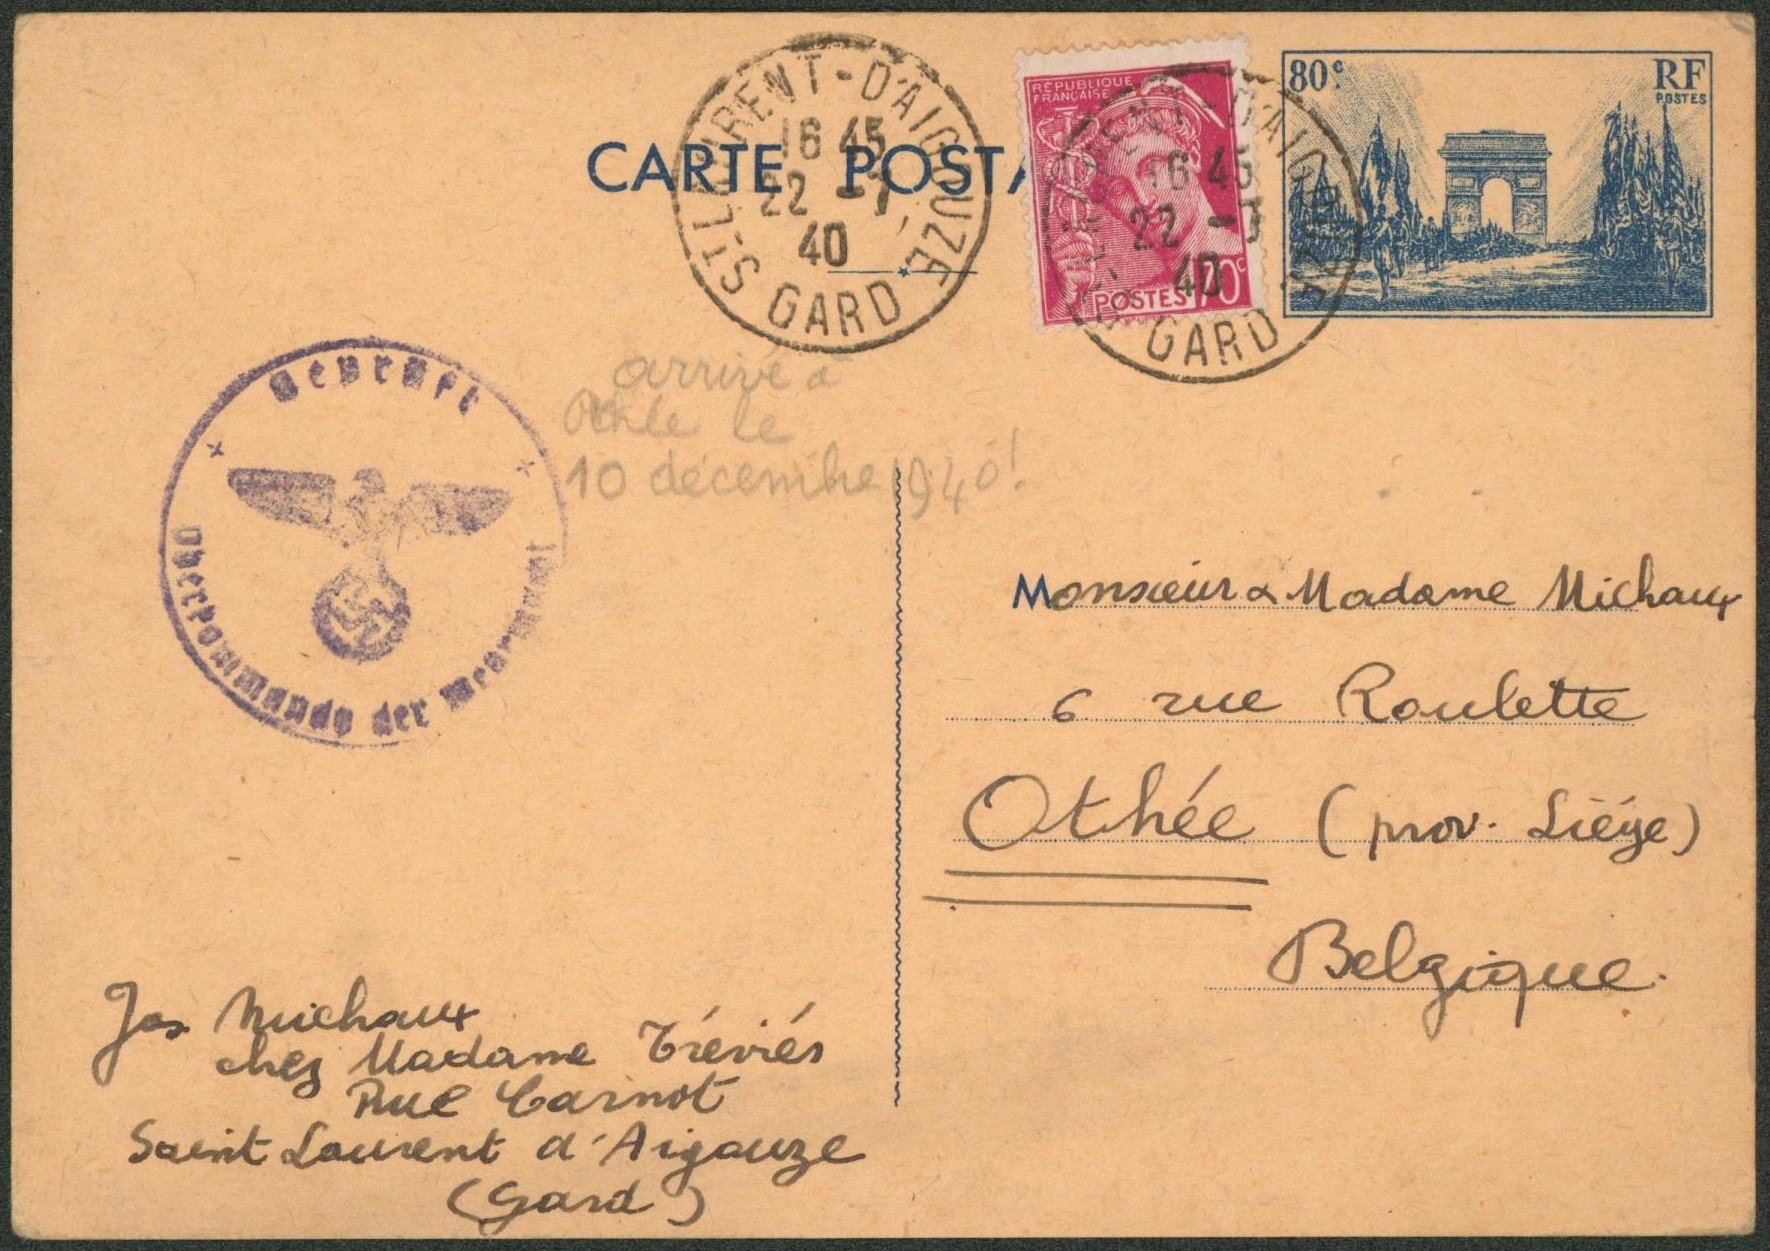 CARTE POSTA
ST-LAURENT-D'AIGOUZE
16 45
22 -7
40
GARD
RÉPUBLIQUE
FRANÇAISE
POSTES 70c
ST-LAURENT-D'AIGOUZE
16 45
22 -7
40
GARD
80c. RF
POSTES
Geprüft
Oberkommando der Wehrmacht
arrivé à
Othée le
10 décembre 1940!
Monsieur & Madame Michaux
6 rue Roulette
Othée (prov. Liége)
Belgique.
Jos Michaux
chez Madame Tréviés
Rue Carnot
Saint Laurent d'Aigouze
(Gard)